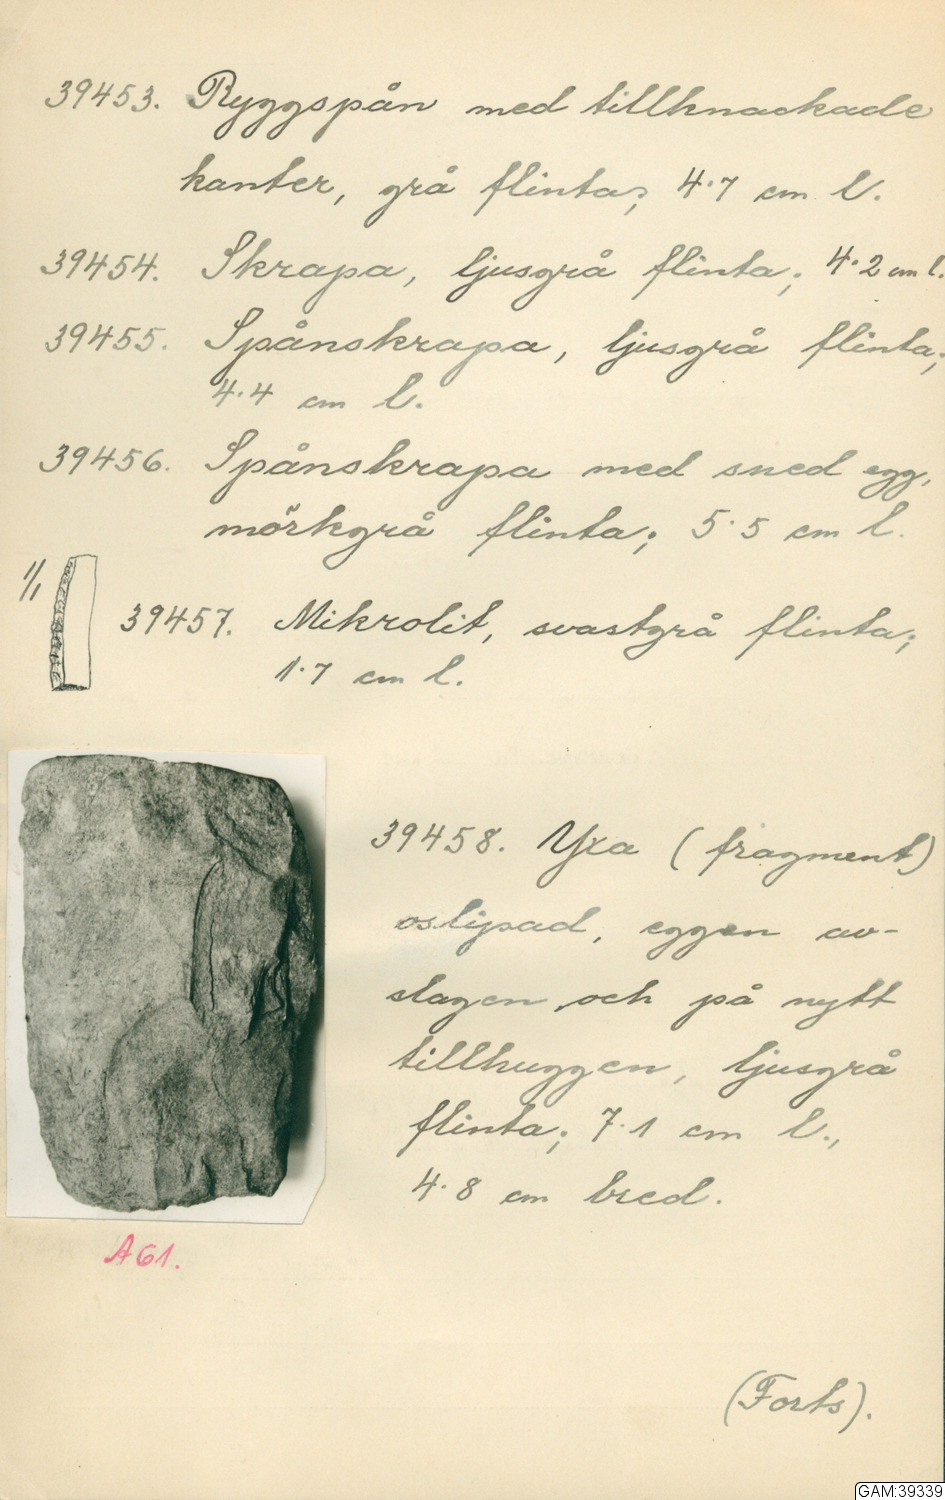 39453. Ryggspån med tillknackade
kanter, grå flinta; 4.7 cm l.
39454. Skrapa, ljusgrå flinta; 4.2 cm l.
39455. Spånskrapa, ljusgrå flinta;
4.4 cm l.
39456. Spånskrapa med sned egg,
mörkgrå flinta; 5.5 cm l.
1/1
39457. Mikrolit, svartgrå flinta;
1.7 cm l.
39458. Yxa (fragment)
oslipad, eggen av-
slagen och på nytt
tillhuggen, ljusgrå
flinta; 7.1 cm l.,
4.8 cm bred.
A61.
(Forts).
GAM:39339